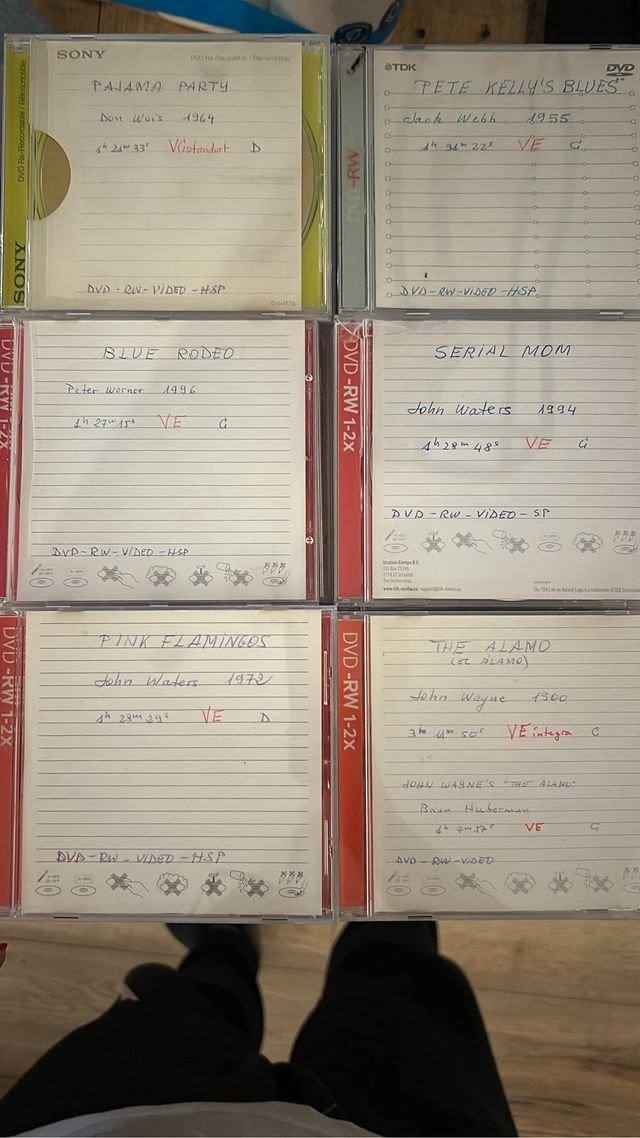 SONY
DVD Re-Recordable / Réinscriptible
SONY
DVD Re-Recordable / Réinscriptible
PAJAMA PARTY
Don Weis 1964
1h 21m 33s VGstandart D
DVD-RW-VIDEO-HSP
TDK
DVD
DVD-RW
PETE KELLY'S BLUES
Jack Webb 1955
1h 31m 22s VE G
DVD-RW-VIDEO-HSP
DVD-RW 1-2X
BLUE RODEO
Peter Werner 1996
1h 27m 15s VE G
DVD-RW-VIDEO-HSP
DVD-RW 1-2X
SERIAL MOM
John Waters 1994
1h 28m 48s VE G
DVD-RW-VIDEO-SP
Imation Europe B.V.
P.O. Box 75745
1118 ZX Schiphol
The Netherlands
www.tdk-media.eu support@tdk-media.eu
The TDK Life on Record Logo is a trademark of TDK Corporation
DVD-RW 1-2X
PINK FLAMINGOS
John Waters 1972
1h 28m 29s VE D
DVD-RW-VIDEO-HSP
DVD-RW 1-2X
THE ALAMO
(EL ÁLAMO)
John Wayne 1960
50s VE integra G
JOHN WAYNE'S "THE ALAMO"
Brian Huberman
1h 7m 57s VE G
DVD-RW-VIDEO